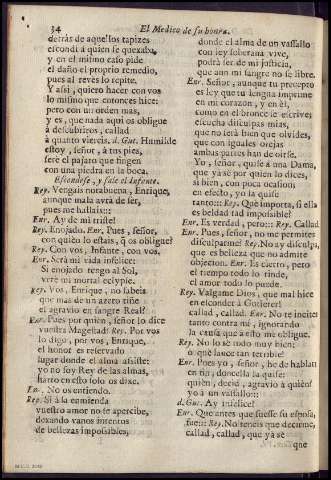 34 El Medico de su honra.
detràs de aquellos tapizes
escondi à quien se quexaba,
y en el mismo caso pide
el daño el proprio remedio,
pues al revès lo repite.
Y assi, quiero hacer con vos
lo mismo que entonces hice:
pero con un orden mas,
y es, que nada aqui os obligue
à descubriros, callad
à quanto viereis. d. Gut. Humilde
estoy, señor, à tus pies,
serè el paxaro que fingen
con una piedra en la boca.
Escondese, y sale el Infante.
Rey. Vengais norabuena, Enrique,
aunque mala avrà de ser,
pues me hallais:::
Enr. Ay de mi triste!
Rey. Enojado. Enr. Pues, señor,
con quien lo estais, q̃ os obligue?
Rey. Con vos, Infante, con vos.
Enr. Serà mi vida infelice:
Si enojado tengo al Sol,
verè mi mortal eclypse.
Rey. Vos, Enrique, no sabeis
que mas de un azero tiñe
el agravio en sangre Real?
Enr. Pues por quien, señor lo dice
vuestra Magestad? Rey. Por vos
lo digo, por vos, Enrique,
el honor es reservado
lugar donde el alma assiste:
yo no soy Rey de las almas,
harto en esto solo os dixe.
Enr. No os entiendo.
Rey. Si à la enmienda
vuestro amor no se apercibe,
dexando vanos intentos
de bellezas impossibles,
donde el alma de un vassallo
con ley soberana vive,
podrà ser de mi justicia,
que aun mi sangre no se libre.
Enr. Señor, aunque tu precepto
es ley que tu lengua imprime
en mi corazon, y en èl,
como en el bronce se escrive;
escucha disculpas mias,
que no serà bien que olvides,
que con iguales orejas
ambas partes han de oirse.
Yo, señor, quise à una Dama,
que ya sè por quien lo dices,
si bien, con poca ocasion;
en efecto, yo la quise
tanto::: Rey. Què importa, si ella
es beldad tan impossible?
Enr. Es verdad, pero::: Rey. Callad
Enr. Pues, señor, no me permites
disculparme? Rey. No ay disculpa,
que es belleza que no admite
objecion. Enr. Es cierto, pero
el tiempo todo lo rinde,
el amor todo lo puede.
Rey. Valgame Dios, que mal hice
en esconder à Gutierre!
callad, callad. Enr. No te incites
tanto contra mi, ignorando
la causa que à esto me obligue.
Rey. Yo lo sè todo muy bien:
ò què lance tan terrible!
Enr. Pues yo, señor, he de hablar
en fin, doncella la quise:
quien, decid, agraviò à quien?
yo à un vassallo:::
d. Gut. Ay infelice!
Enr. Que antes que fuesse su esposa,
fue::: Rey. No teneis que decirme,
callad, callad, que ya sè
que